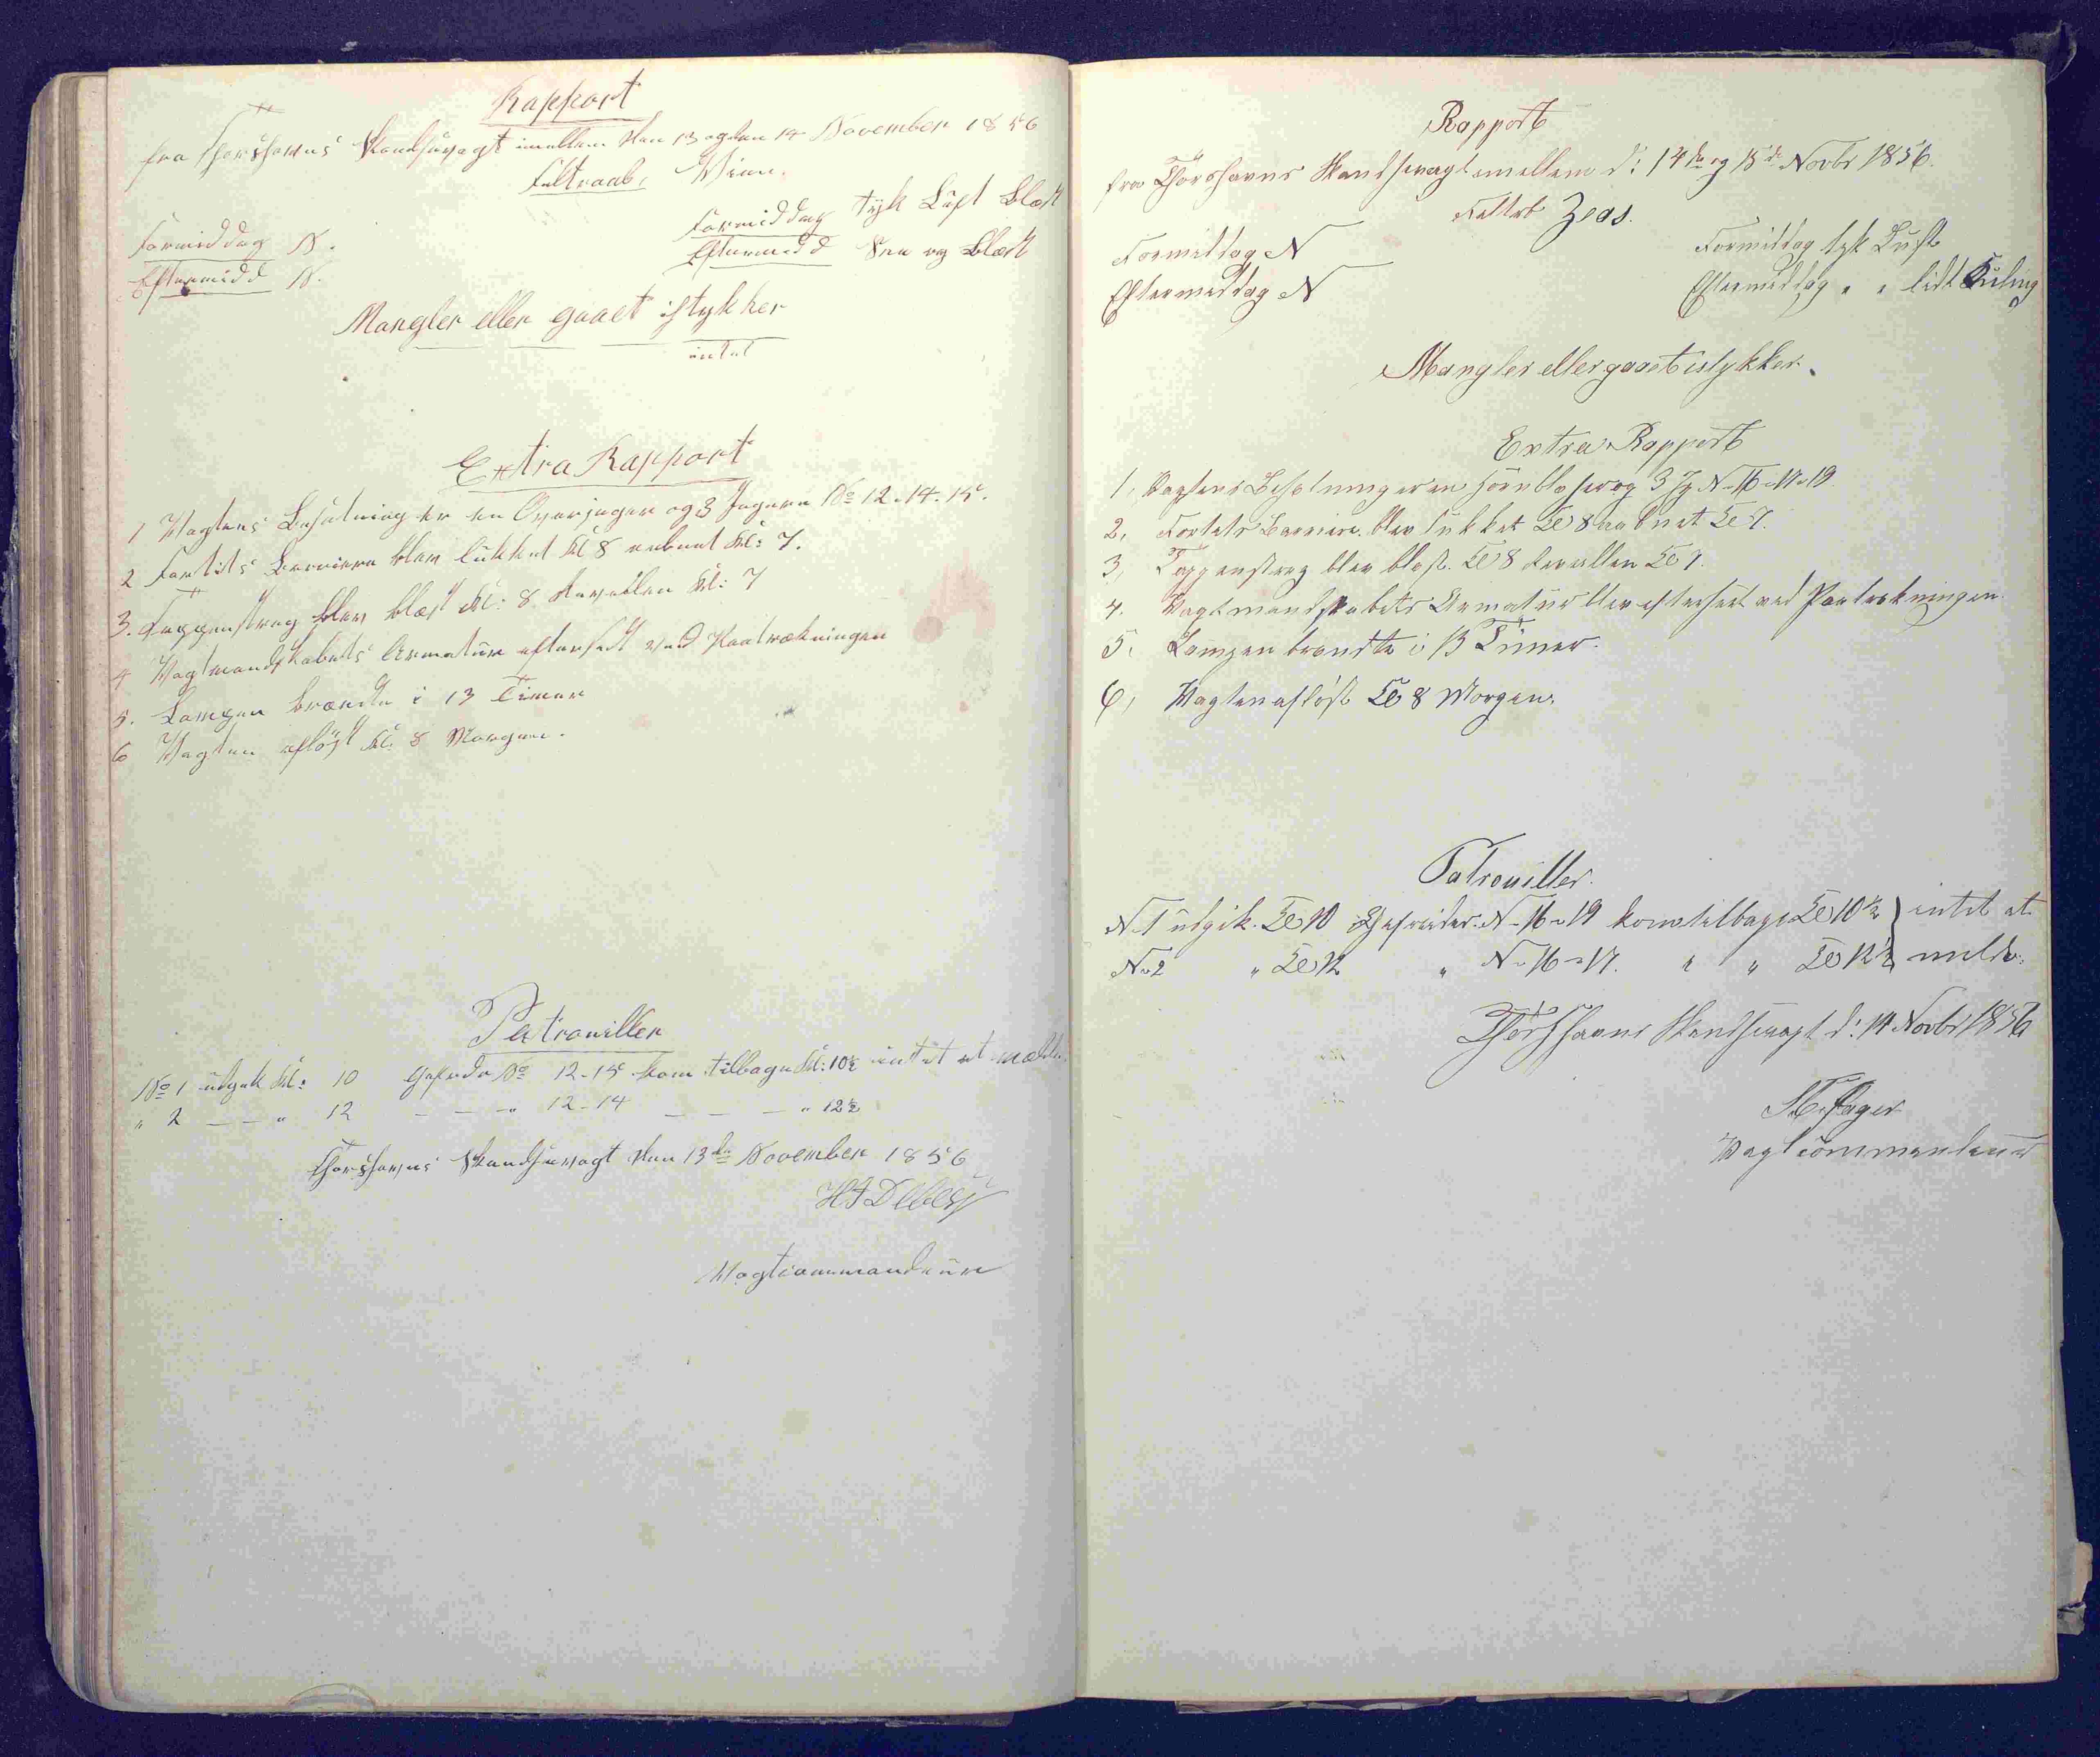 Rapport
fra Thorshavns Skandsevagt imellem den 13 og den 14 November 1856
Feltraab, Wien.
Formiddag N. Formiddag tyk Luft Blæst
Eftermidd N. Eftermidd Sne og Blæst
Mangler eller gaaet istykker
intet
Extra Rapport
1 Vagtens Besætning er en Overjæger og 3 Jægere No 12-14-15.
2 Fortets Barriere blev lukket Kl 8 aabnet Kl: 7.
3. Tappenstreg blev blæst Kl: 8 Revellen Kl: 7
4 Vagtmandskabets Armatur efterseet ved Paatrækningen
5. Lampen brændte i 13 Timer
6 Vagten afløst Kl. 8 Morgen.
Patrouiller
No 1 udgik Kl: 10 Gefreder No 12-15 kom tilbage Kl: 10½ intet at melde
" 2 — — " 12 — — " 12-14 — — — " 12½
Thorshavns Skandsevagt den 13de November 1856
Vagtcommandeur
Rapport
fra Thorshavns Skandsevagt imellem d: 14de og 15de Novbr 1856.
Feltrb Zeas.
Formiddag N Formiddag tyk Luft
Eftermiddag N Eftermiddag " " lidt Kuling
Mangler eller gaaet istykker.
Extra Rapport
1, Vagtens Besætning er en Hornblæser og 3 Jg N- 16-17-19.
2, Fortets Barriere blev lukket Kl 8 aabnet Kl 7.
3, Tappenstreg blev blæst Kl 8 Revellen Kl 7.
4. Vagtmandskabets Armatur blev efterseet ved Paatrækningen.
5, Lampen brændte i 13 Timer.
6, Vagten afløst Kl 8 Morgen.
Patrouiller.
N-1 udgik Kl 10 Gefreider N- 16-19 kom tilbage Kl 10½ } intet at
N-2 " Kl 12 " N- 16-17. " " Kl 12½ } melde.
Thorshavns Skandsevagt d: 14 Novbr 1856
Vagtcommandeur